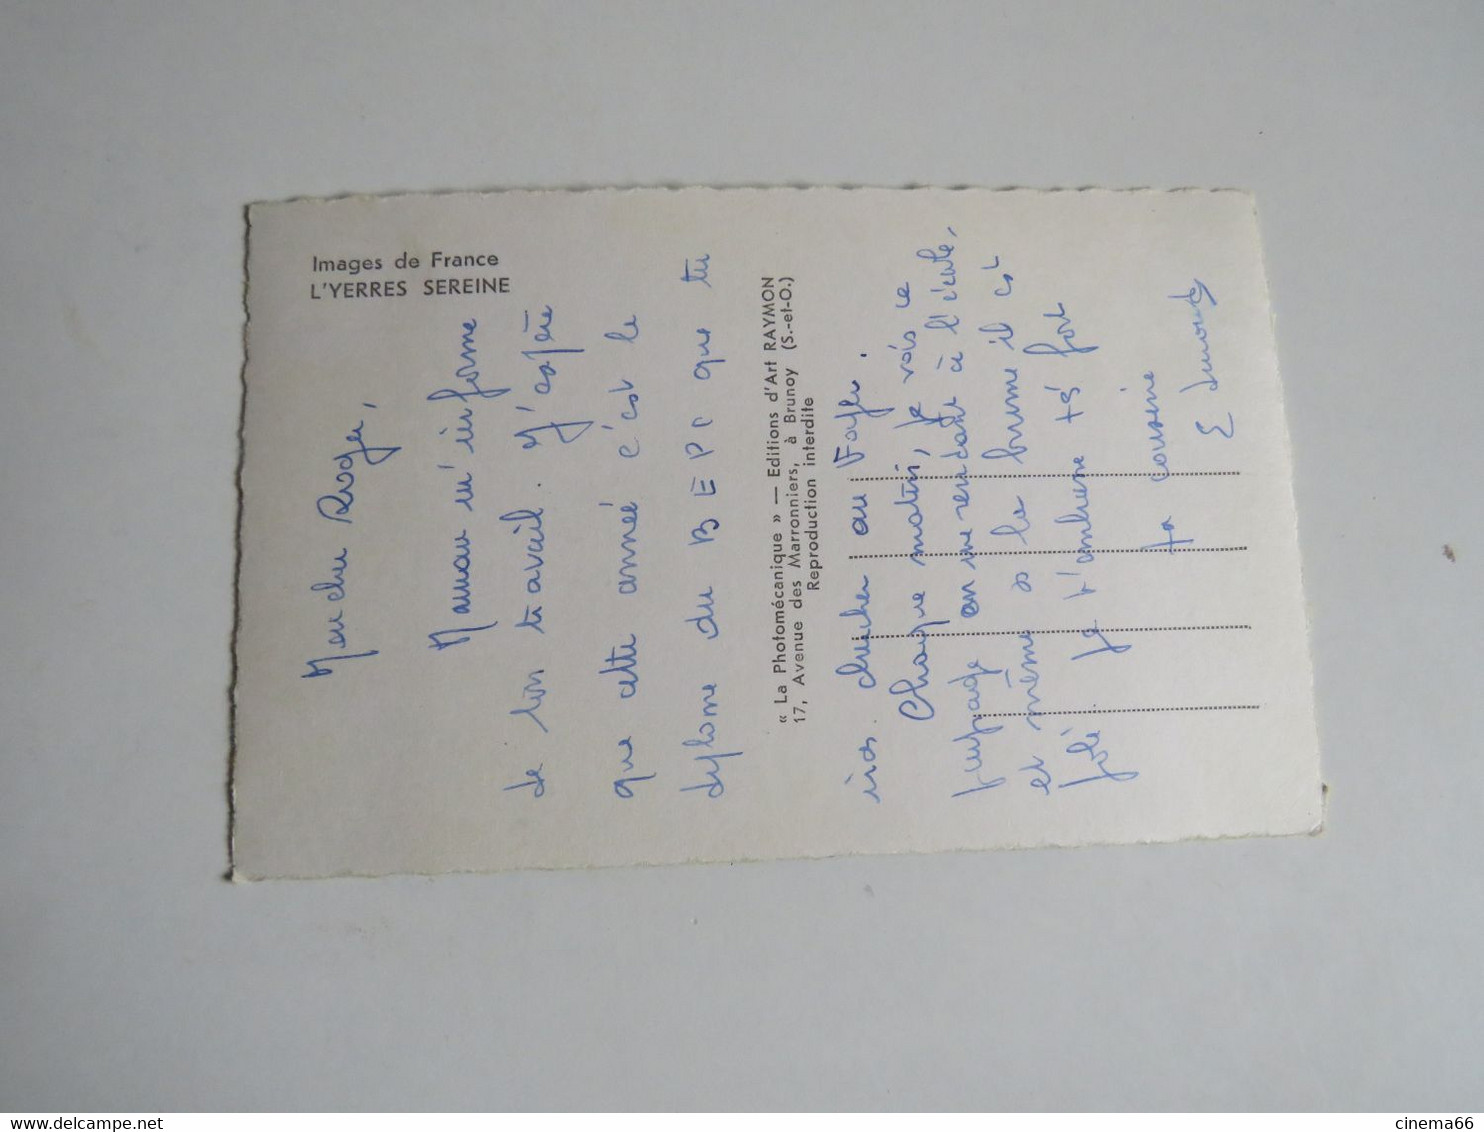 Images de France
L'YERRES SEREINE
Mon cher Roger,
Maman m'informe
de ton travail. J'espère
que cette année c'est le
diplome du BEPC que tu
« La Photomécanique » — Editions d'Art RAYMON
17, Avenue des Marronniers, à Brunoy (S.-et-O.)
Reproduction interdite
iras chercher au Foyer.
Chaque matin, je vois ce
paysage en me rendant à l'école,
et même s le brume il est
joli. Je t'embrasse ts fort
ta cousine
E
cinema66